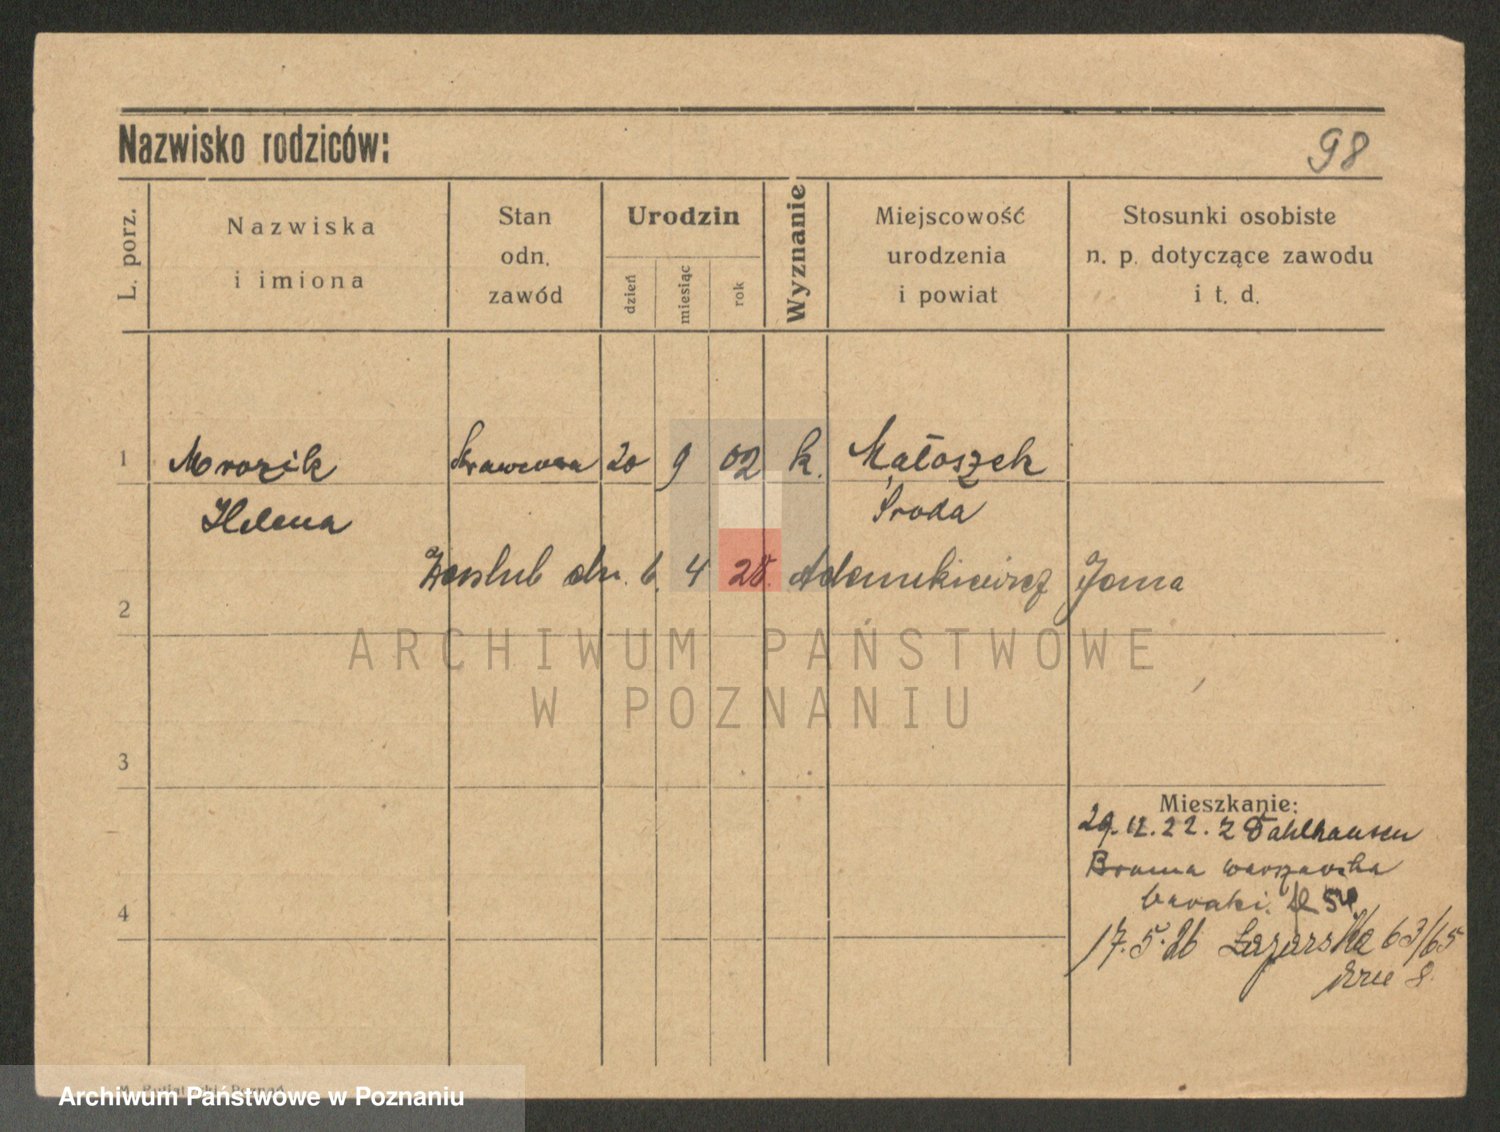 Nazwisko rodziców:
98
L. porz.
Nazwiska
i imiona
Stan
odn.
zawód
Urodzin
dzień
miesiąc
rok
Wyznanie
Miejscowość
urodzenia
i powiat
Stosunki osobiste
n. p. dotyczące zawodu
i t. d.
1 Mrozik Krawcowa 20 9 02 k. Małoszek
Helena Środa
Zaślub dn. 6. 4 28. Adamkiewicz Jana
2
ARCHIWUM PAŃSTWOWE
W POZNANIU
3
Mieszkanie:
29.12.22. z Dahlhausen
Brama warszawska
baraki.
4
17.5.26 Łazarska 63/65
8.
Archiwum Państwowe w Poznaniu